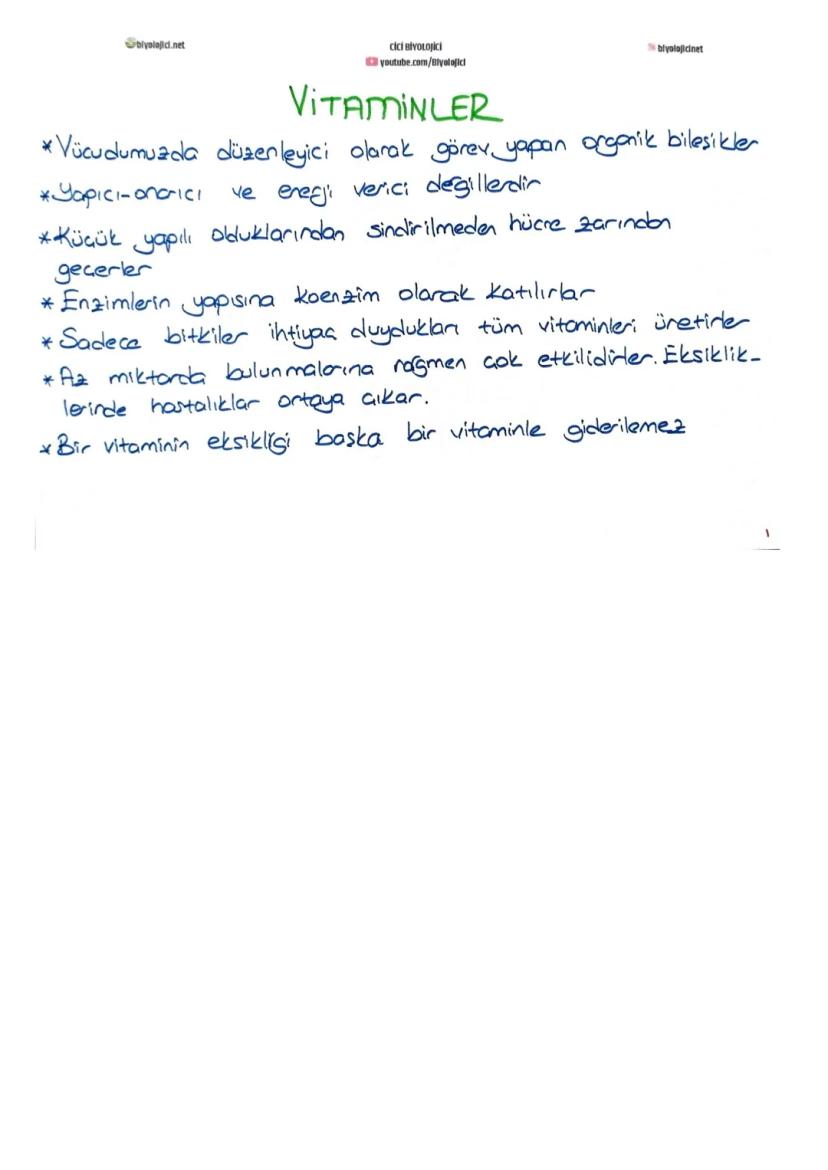 biyolojici.net
CİCİ BİYOLOJİCİ
youtube.com/Biyolojici
biyolojicinet
VİTAMİNLER
* Vücudumuzda düzenleyici olarak görev yapan organik bileşikler
* Yapıcı-onarıcı ve enerji verici değillerdir
* Küçük yapılı olduklarından sindirilmeden hücre zarından
geçerler
* Enzimlerin yapısına koenzim olarak katılırlar
* Sadece bitkiler ihtiyaç duydukları tüm vitaminleri üretirler
* Az miktarda bulunmalarına rağmen çok etkilidirler. Eksiklik-
lerinde hastalıklar ortaya çıkar.
* Bir vitaminin eksikliği başka bir vitaminle giderilemez
1